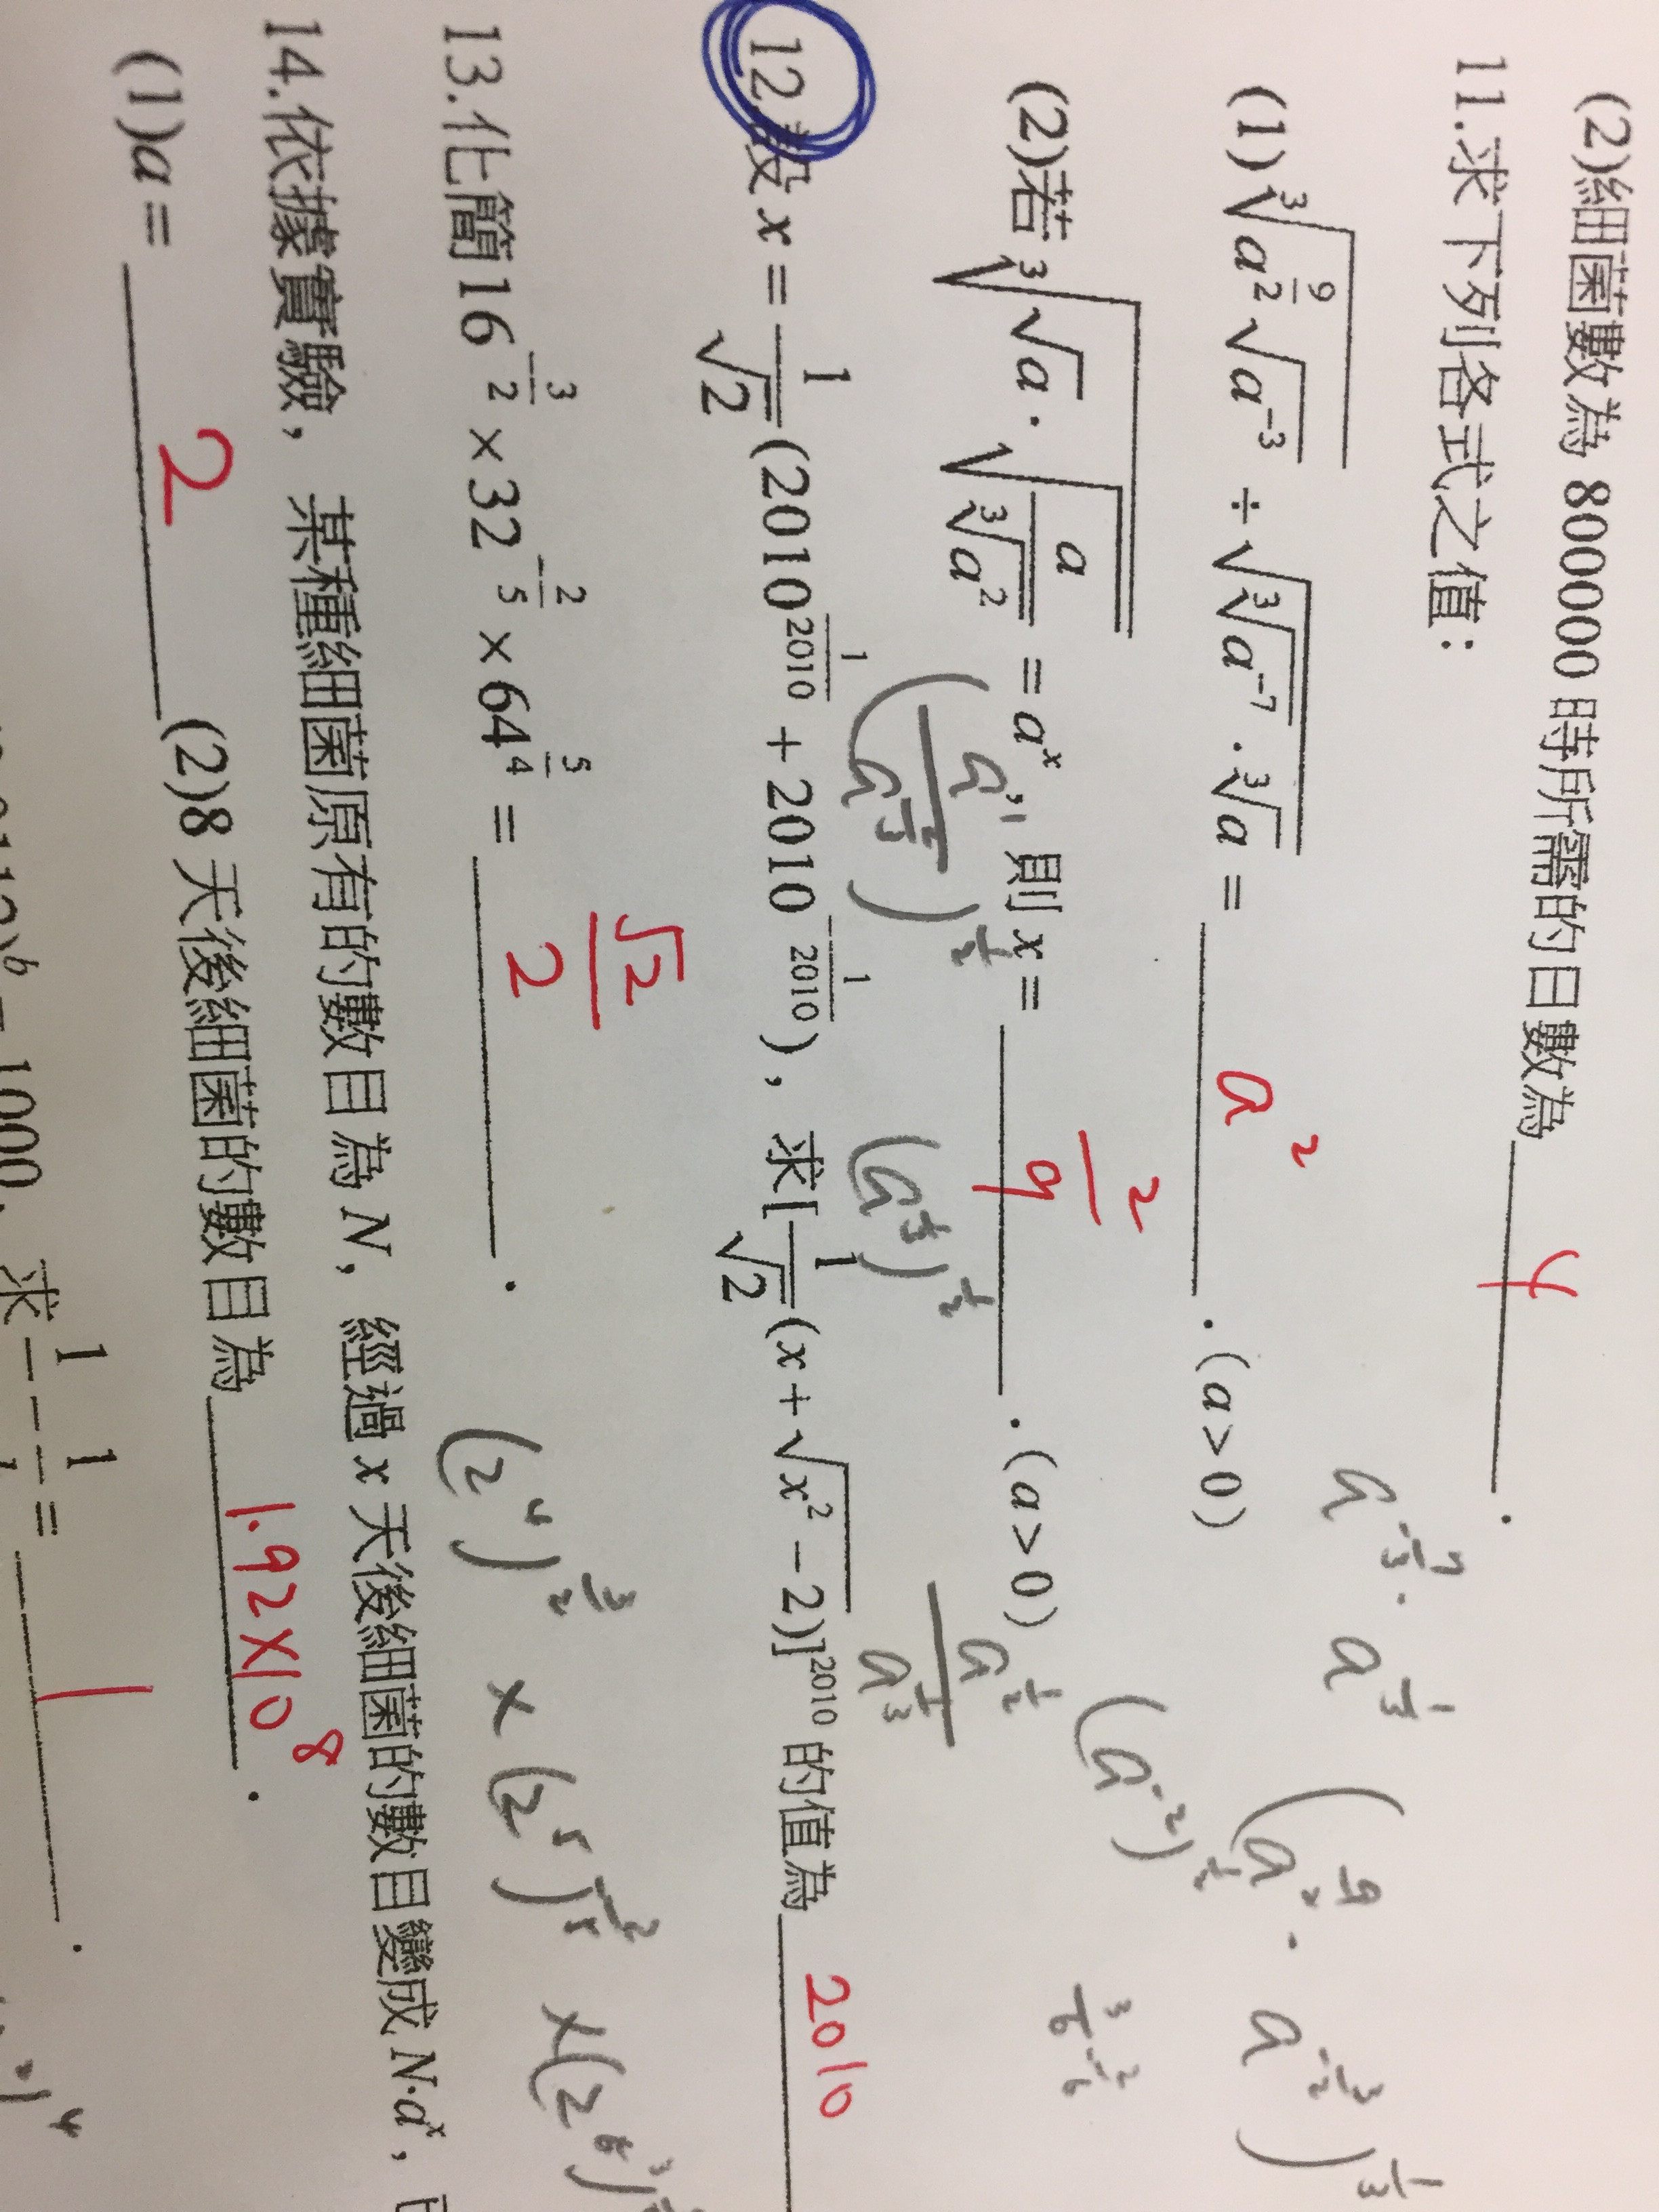 (2)細菌數為 800000 時所需的日數為 4 .
11.求下列各式之值：
(1)∛(a^(9/2)√(a^(-3))) ÷ √(∛(a^(-7))·∛a) = a² .(a>0)
a^(-7/3)·a^(1/3)
(a^(9/2)·a^(-3/2))^(1/3)
(a^(-2))^(1/2)
(2)若∛(√a·√(a/∛(a²))) = a^x，則 x = 2/9 .(a>0)
3/6-2/6
(a^1/a^(2/3))^(1/2) (a^(1/3))^(1/2) a^(1/2)/a^(1/3)
12.設 x = 1/√2(2010^(1/2010) + 2010^(-1/2010))，求[1/√2(x+√(x²-2))]^2010 的值為 2010
13.化簡16^(-3/2)×32^(-2/5)×64^(5/4) = √2/2 .
14.依據實驗，某種細菌原有的數目為 N，經過 x 天後細菌的數目變成 N·a^x，
(1)a = 2 (2)8 天後細菌的數目為 1.92×10⁸ .
= 1000，求 1/ - 1/ = 1 .